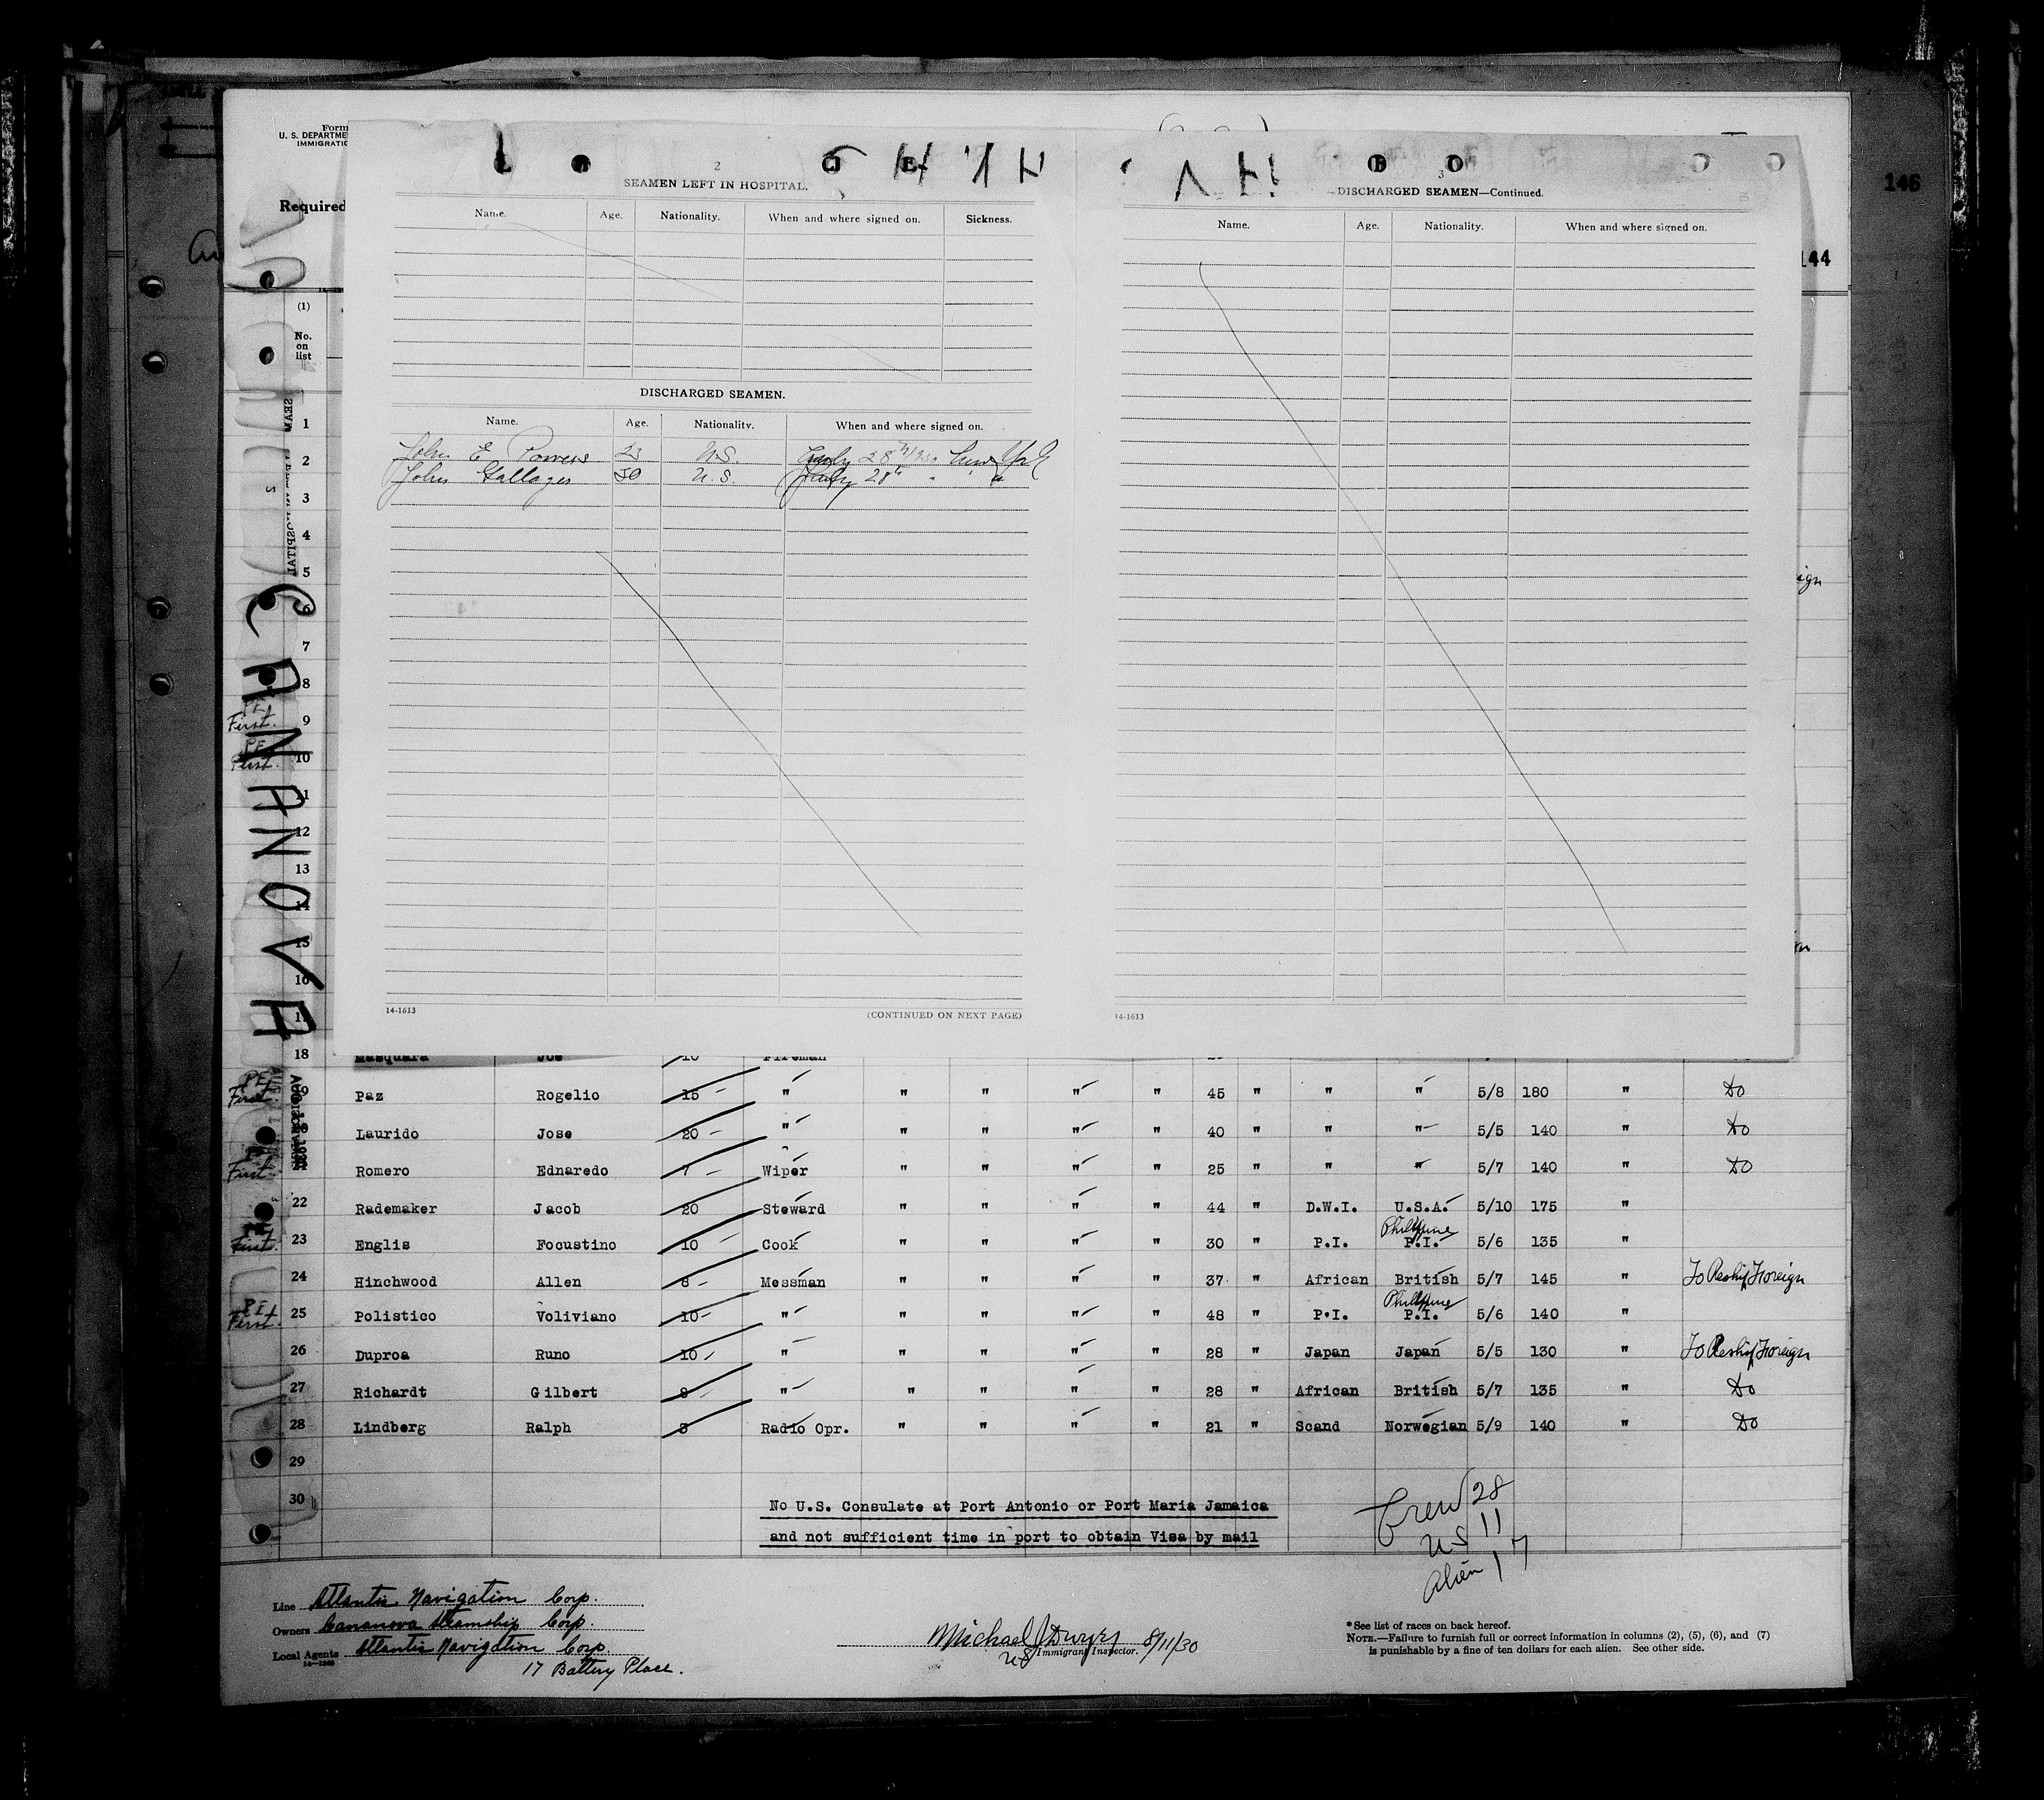 Form
U. S. DEPARTME
IMMIGRATIO
Required
146
144
(1)
No.
on
list
CANANOVA
2
SEAMEN LEFT IN HOSPITAL.
Name. Age. Nationality. When and where signed on. Sickness.
DISCHARGED SEAMEN.
Name. Age. Nationality. When and where signed on.
John E Powers 23 U.S. July 28th/30 New York
John Gallager 50 U.S. July 28th " "
14-1613 (CONTINUED ON NEXT PAGE)
3
DISCHARGED SEAMEN—Continued.
Name. Age. Nationality. When and where signed on.
14-1613
1
2
3
4
5
6
7
8
First. 9
10
11
12
13
14
15
16
17
18 Masquara Joe 10 Fireman
PE First. 19 Paz Rogelio 15 " " " " " 45 " " " 5/8 180 " Do
Laurido Jose 20 " " " " " 40 " " " 5/5 140 " Do
First. Romero Ednaredo 7 Wiper " " " " 25 " " " 5/7 140 " Do
22 Rademaker Jacob 20 Steward " " " " 44 " D.W.I. U.S.A. 5/10 175 "
First. 23 Englis Focustino 10 Cook " " " " 30 " P.I. Philippine P.I. 5/6 135 "
24 Hinchwood Allen 8 Messman " " " " 37 " African British 5/7 145 " To Reship Foreign
PE First. 25 Polistico Voliviano 10 " " " " " 48 " P.I. Philippine P.I. 5/6 140 "
26 Duproa Runo 10 " " " " " 28 " Japan Japan 5/5 130 " To Reship Foreign
27 Richardt Gilbert 8 " " " " " 28 " African British 5/7 135 " Do
28 Lindberg Ralph 3 Radio Opr. " " " " 21 " Scand Norwegian 5/9 140 " Do
29
30
No U.S. Consulate at Port Antonio or Port Maria Jamaica
and not sufficient time in port to obtain Visa by mail
Crew 28
US 11
Alien 17
Line Atlantic Navigation Corp.
Owners Cananova Steamship Corp.
Local Agents Atlantic Navigation Corp.
17 Battery Place.
Michael J Dwyer 8/11/30
US Immigrant Inspector.
* See list of races on back hereof.
NOTE.—Failure to furnish full or correct information in columns (2), (5), (6), and (7)
is punishable by a fine of ten dollars for each alien. See other side.